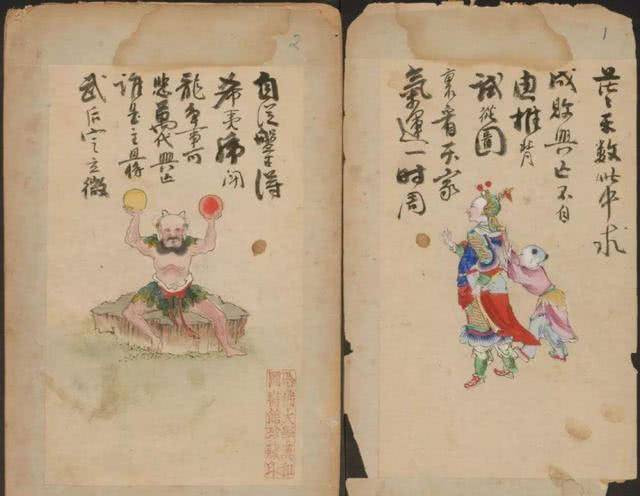 1
茫天數此中求
成敗興亡不自
由推背
試從圖
裏看天家
氣運一時周
2
自從盤古得
希夷虎鬥
龍爭事可
悲萬代興亡
誰是主且將
武后定立